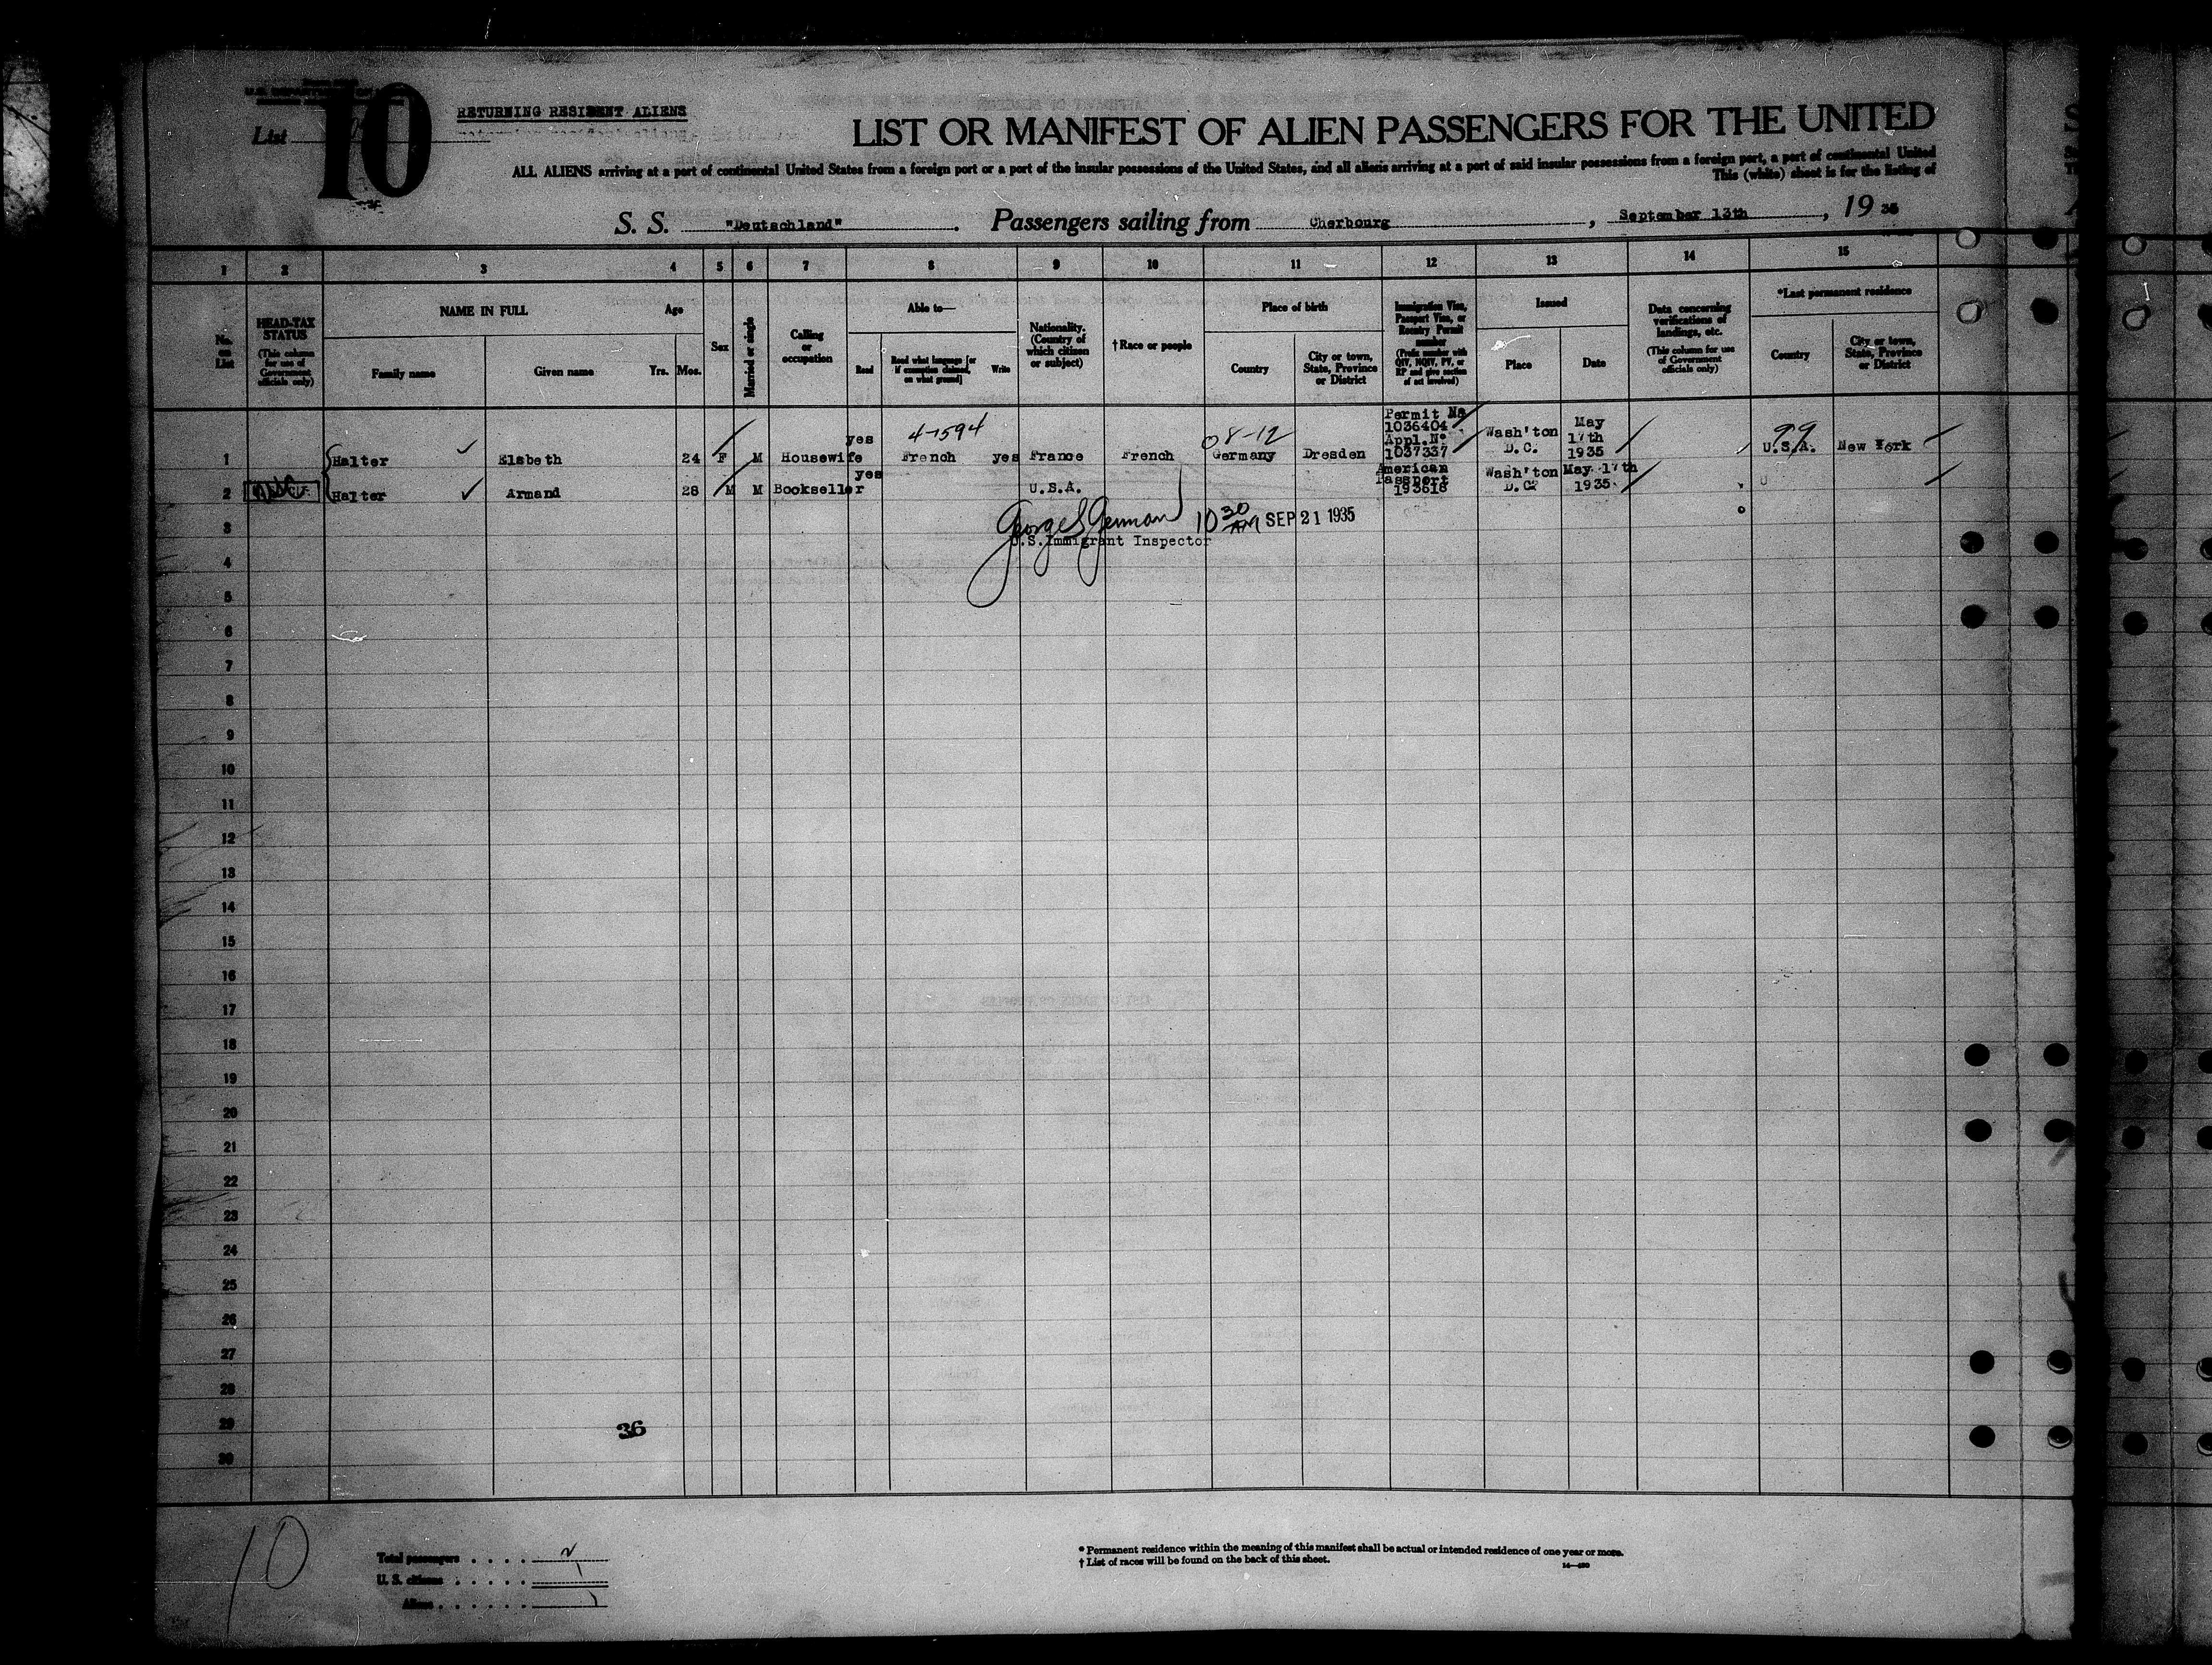 10
RETURNING RESIDENT ALIENS
List
LIST OR MANIFEST OF ALIEN PASSENGERS FOR THE UNITED
ALL ALIENS arriving at a port of continental United States from a foreign port or a port of the insular possessions of the United States, and all aliens arriving at a port of said insular possessions from a foreign port, a port of continental United
This (white) sheet is for the listing of
S. S. "Deutschland". Passengers sailing from Cherbourg, September 13th, 19 35
1 2 3 4 5 6 7 8 9 10 11 12 13 14 15
No. on List
HEAD-TAX STATUS (This column for use of Government officials only)
NAME IN FULL
Family name
Given name
Age
Yrs. Mos.
Sex
Married or single
Calling or occupation
Able to—
Read
Read what language [or if exemption claimed, on what ground]
Write
Nationality. (Country of which citizen or subject)
† Race or people
Place of birth
Country
City or town, State, Province or District
Immigration Visa, Passport Visa, or Reentry Permit number
(Prefix number with QIV, NQIV, PV, or RP and give section of act involved)
Issued
Place
Date
Data concerning verifications of landings, etc.
(This column for use of Government officials only)
*Last permanent residence
Country
City or town, State, Province or District
1 Halter Elsbeth 24 F M Housewife yes 4-1594 French yes France French 08-12 Germany Dresden Permit No 1036404 Appl.No 1037337 Wash'ton D.C. May 17th 1935 99 U.S.A. New York
2 Halter Armand 28 M M Bookseller yes U.S.A. American Passport 193618 Wash'ton D.C. May 17th 1935
George S German 10 30 AM SEP 21 1935
U.S.Immigrant Inspector
3
4
5
6
7
8
9
10
11
12
13
14
15
16
17
18
19
20
21
22
23
24
25
26
27
28
29 36
30
10
Total passengers . . . . 2
U. S. citizens . . . . . 1
Aliens . . . . . . 1
* Permanent residence within the meaning of this manifest shall be actual or intended residence of one year or more.
† List of races will be found on the back of this sheet.